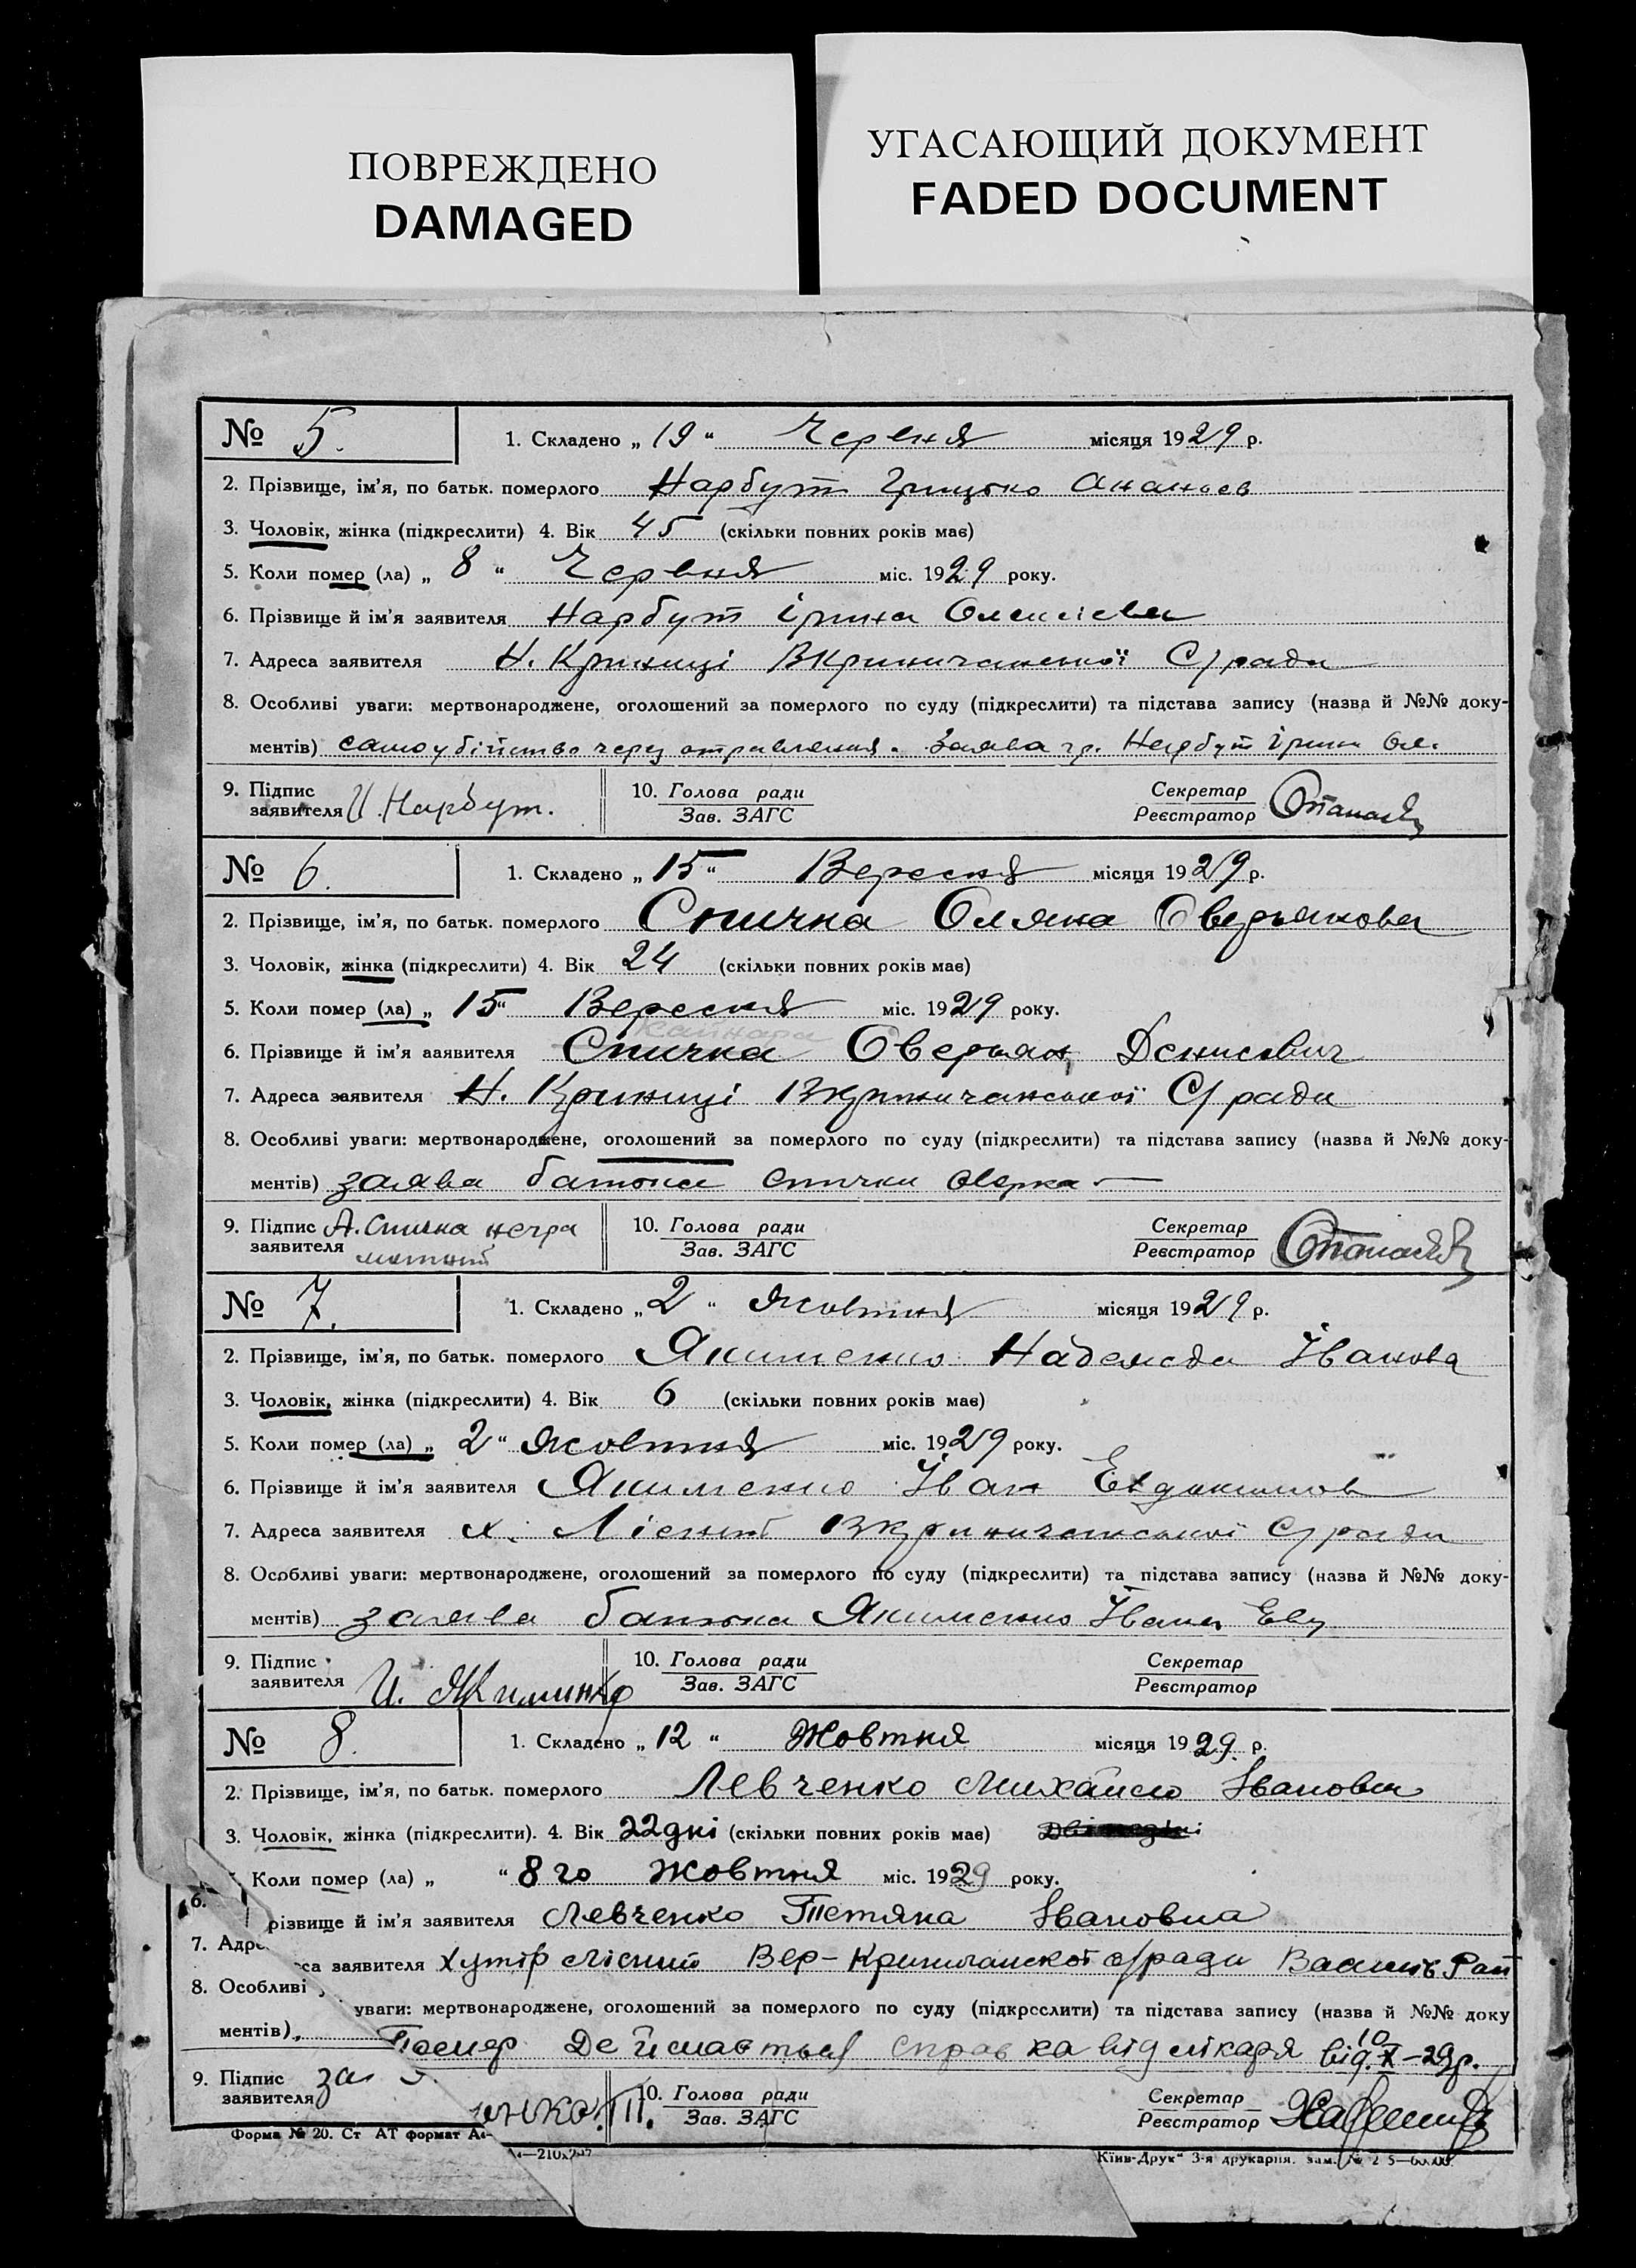 ПОВРЕЖДЕНО
DAMAGED
УГАСАЮЩИЙ ДОКУМЕНТ
FADED DOCUMENT
№ 5. 1. Складено „ 19 “ Червня місяця 1929 р.
2. Прізвище, ім'я, по батьк. померлого Нарбут Грицько Ананьев
3. Чоловік, жінка (підкреслити) 4. Вік 45 (скільки повних років має)
5. Коли помер (ла) „ 8 “ Червня міс. 1929 року.
6. Прізвище й ім'я заявителя Нарбут Ірина
7. Адреса заявителя Н. Криниці ВКриничанської С/ ради
8. Особливі уваги: мертвонароджене, оголошений за померлого по суду (підкреслити) та підстава запису (назва й №№ доку-
ментів) самоубійство через отравления. Заява гр. Нарбут Ірини Ол.
9. Підпис заявителя И. Нарбут. 10. Голова ради Зав. ЗАГС Секретар Реєстратор
№ 6. 1. Складено „ 15 “ Вересня місяця 1929 р.
2. Прізвище, ім'я, по батьк. померлого Спичка Оляна Оверьянова
3. Чоловік, жінка (підкреслити) 4. Вік 24 (скільки повних років має)
5. Коли помер (ла) „ 15 “ Вересня міс. 1929 року.
6. Прізвище й ім'я заявителя Спичка Оверьян Денисович
7. Адреса заявителя Н. Криниці ВКриничанської С/ ради
8. Особливі уваги: мертвонароджене, оголошений за померлого по суду (підкреслити) та підстава запису (назва й №№ доку-
ментів) заява батька Спички
9. Підпис заявителя А. Спичка негра мотний 10. Голова ради Зав. ЗАГС Секретар Реєстратор
№ 7. 1. Складено „ 2 “ Жовтня місяця 1929 р.
2. Прізвище, ім'я, по батьк. померлого Якименко Надежда Іванова
3. Чоловік, жінка (підкреслити) 4. Вік 6 (скільки повних років має)
5. Коли помер (ла) „ 2 “ Жовтня міс. 1929 року.
6. Прізвище й ім'я заявителя Якименко Іван Евдокимов
7. Адреса заявителя х. Лісний ВКриничанської С/ ради
8. Особливі уваги: мертвонароджене, оголошений за померлого по суду (підкреслити) та підстава запису (назва й №№ доку-
ментів) заява батька Якименко Івана Евд
9. Підпис заявителя И. Якименко 10. Голова ради Зав. ЗАГС Секретар Реєстратор
№ 8. 1. Складено „ 12 “ Жовтня місяця 1929. р.
2. Прізвище, ім'я, по батьк. померлого Левченко Михайло Іванович
3. Чоловік, жінка (підкреслити). 4. Вік 22 дні (скільки повних років має)
Коли помер (ла) „ “ 8 го Жовтня міс. 1929 року.
6. різвище й ім'я заявителя Левченко Тетяна Івановна
7. Адре са заявителя Хутір Лісний Вер-Криничанской с/ради Васильв Рай
8. Особливі уваги: мертвонароджене, оголошений за померлого по суду (підкреслити) та підстава запису (назва й №№ доку
ментів) Помер Де й мається справка від лікаря від 10 X-29р.
9. Підпис заявителя за енко Т. 10. Голова ради Зав. ЗАГС Секретар Реєстратор
Форма № 20. Ст АТ формат А4—210х297 Київ-Друк“ 3-я друкарня. зам.